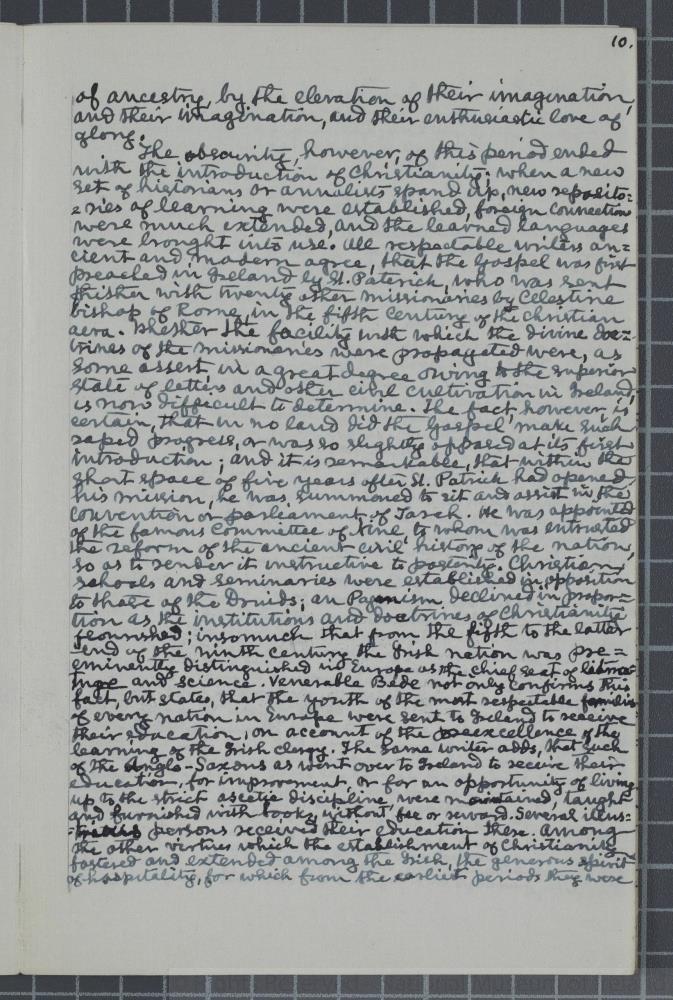 10.
of ancestry, by the elevation of their imagination,
and their imagination, and their enthusiastic love of
glory.
The obscurity, however, of this period ended
with the introduction of Christianity: when a new
set of historians or annalists sprand up, new reposito=
=ries of learning were established, foreign connection
were much extended, and the learned languages
were brought into use. All respectable writers an=
cient and modern agree, that the Gospel was first
preached in Ireland by St. Paterick, who was sent
thither with twenty other missionaries by Celestine
bishop of Rome, in the fifth century of the christian
aera. Whether the facility with which the divine doc=
trines of the missionaries were propagated were, as
some assert in a great degree owing to the superior
state of letters and other civil cultivation in Ireland,
is now difficult to determine. The fact, however, is
certain, that in no land did the Gospel make such
raped progress, or was so slightly opposed at its first
introduction; and it is remarkable, that within the
short space of five years after St. Patrick had opened
his mission, he was summoned to sit and assist in the
convention or parliament of Tarah. He was appointed
of the famous Committee of Nine to whom was entrusted
the reform of the ancient civil history of the nation,
so as to render it instructive to posterity. Christian
schools and seminaries were established in opposition
to those of the Druids; an Paganism declined in propor=
tion as the institutions and doctrines of Christianity
flourished; insomuch that from the fifth to the latter
end of the ninth century the Irish nation was pre=
eminently distinguished in Europe as the chief seat of litera=
ture and science. Venerable Bede not only confirms this
fact, but states, that the youth of the most respectable families
of every nation in Europe were sent to Ireland to receive
their education, on account of the preexcellence of the
learning of the Irish clergy. The same writer adds, that such
of the Anglo-Saxons as went over to Ireland to receive their
education, for improvement, or for an opportunity of living
up to the strict ascetic discipline, were maintained, taught
and furnished with books, without fee or reward. Several illus=
=trious persons received their education there. Among
the other virtues which the establishment of Christianity
fostered and extended among the Irish, the generous spirit
of hospitality, for which from the earliest periods they were